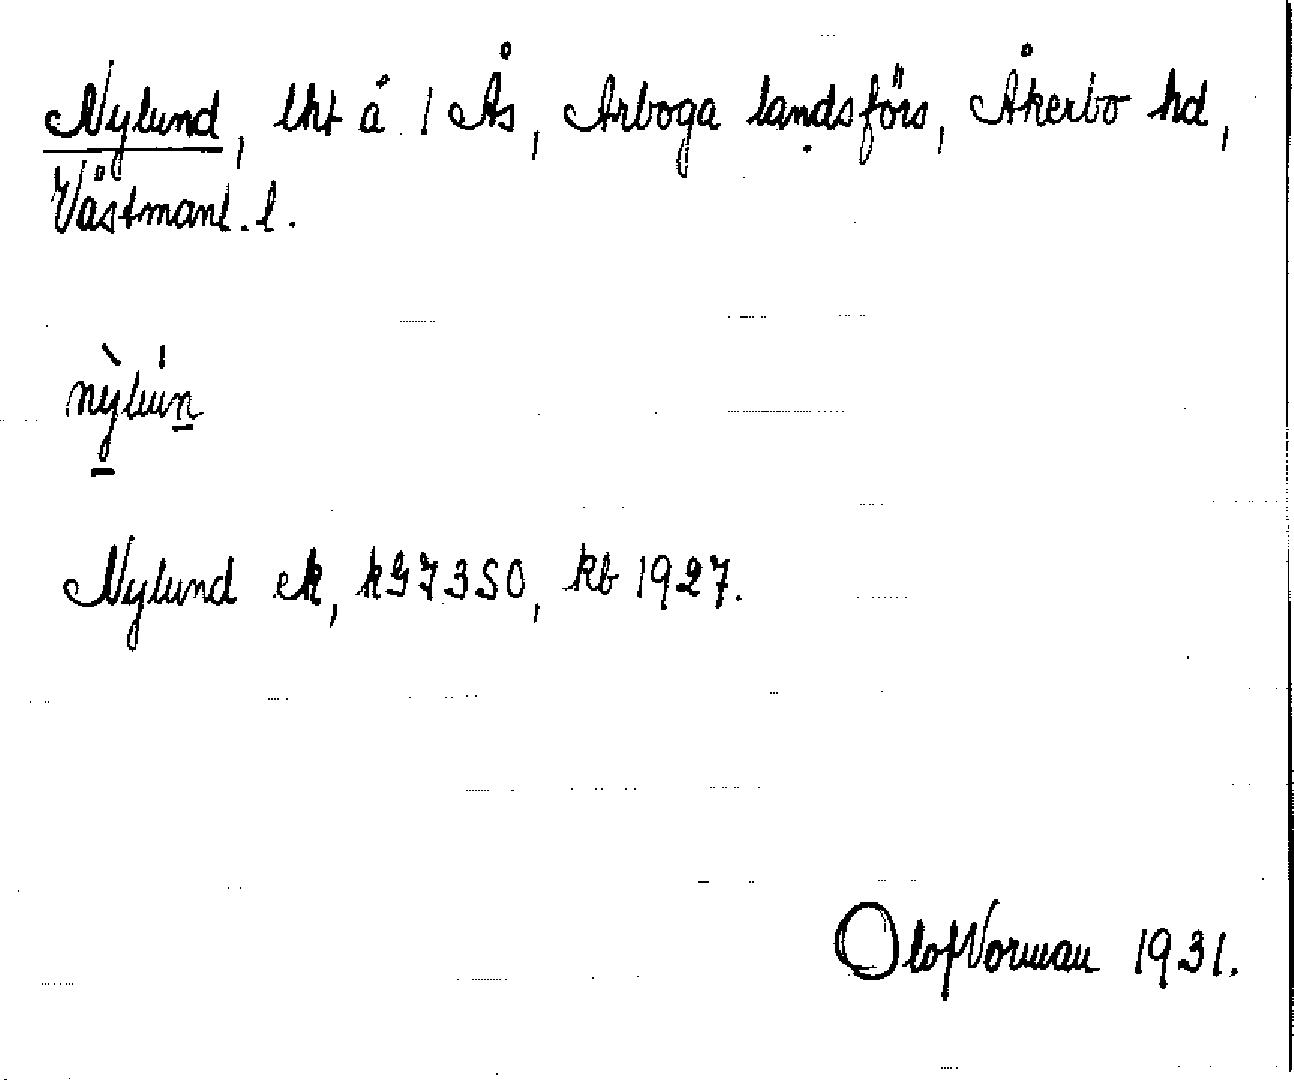 Nylund, lht å 1 Ås, Arboga landsförs, Åkerbo hd,
Västmanl. l.
nỳluń
Nylund ek, kG7350, kb 1927.
Olof Norman 1931.